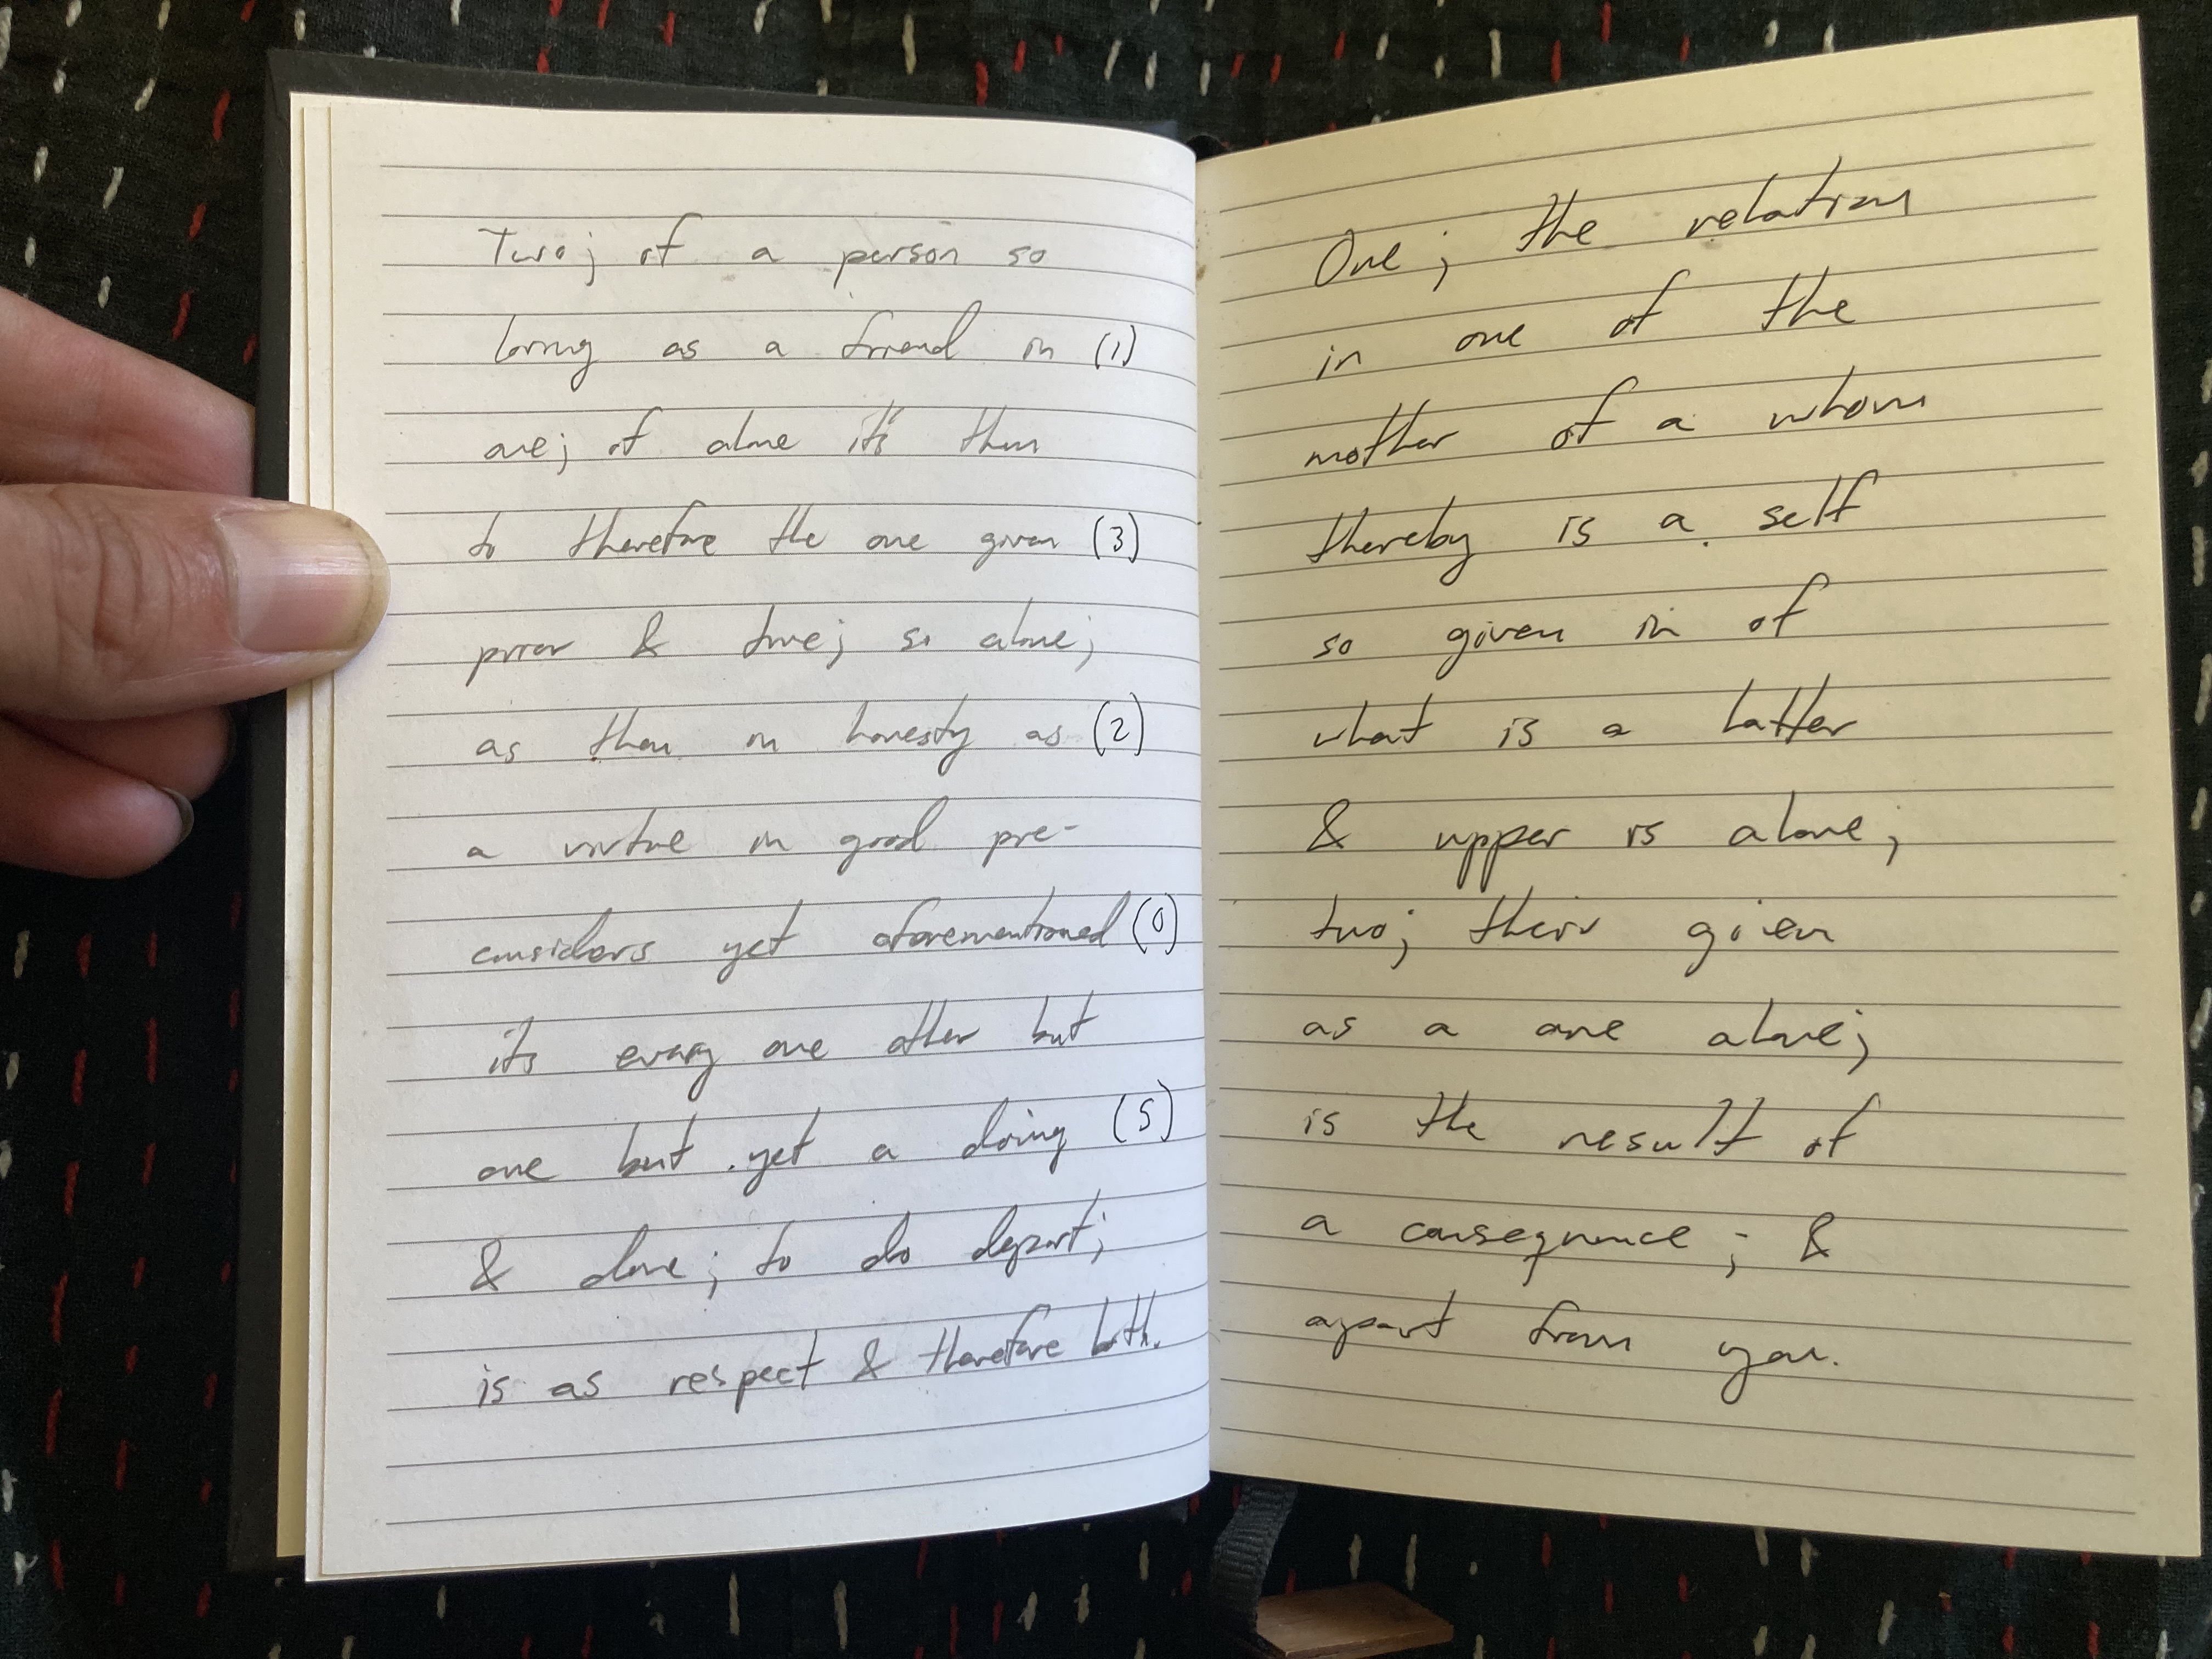 Two; of a person so
loving as a friend in (1)
one; of alone it's then
to therefore the one given (3)
prior & true; so alone;
as then in honesty as (2)
a virtue in good pre-
considers yet aforementioned (0)
its every one other but
one but yet a doing (5)
& alone; to do depart;
is as respect & therefore both.
One; the relation
in one of the
mother of a whom
thereby is a self
so given in of
what is a latter
& upper is alone;
two; their given
as a one alone;
is the result of
a consequence; &
apart from you.